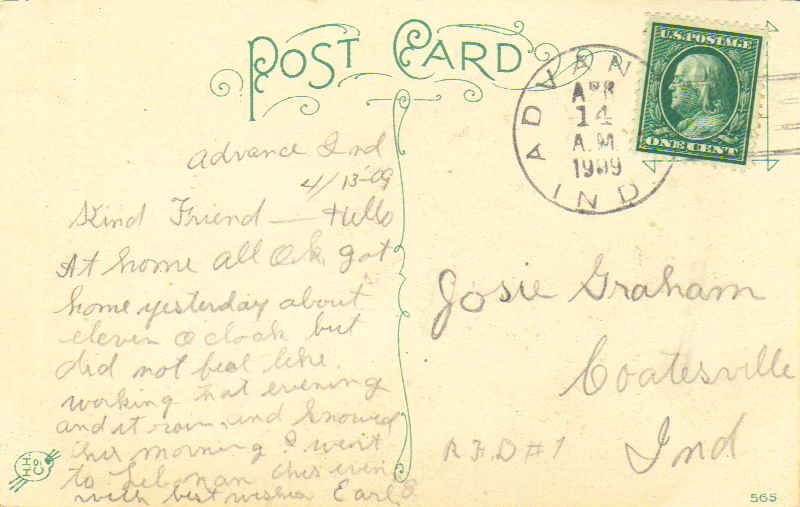 POST CARD
U.S. POSTAGE
ONE CENT
ADVAN
APR
14
A.M.
1909
IND
Advance Ind
4/13-09
Kind Friend — Hello
At home all O.k. got
home yesterday about
eleven o clock but
did not feel like
working that evening
and it rain and snowed
this morning I went
to Lebonan this even
with best wishes Earl
Josie Graham
Coatesville
Ind
R.F.D #1
565